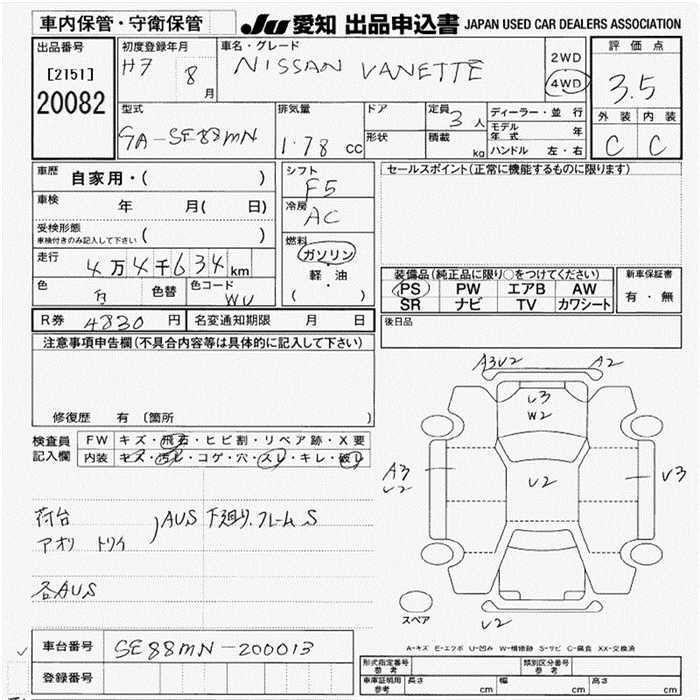 車内保管・守衛保管
JU 愛知 出品申込書 JAPAN USED CAR DEALERS ASSOCIATION
出品番号
[2151]
20082
初度登録年月
H7 8月
車名・グレード
NISSAN VANETTE
2WD
4WD
評価点
3.5
外装 内装
C C
型式
GA-SE88MN
排気量
1.78 cc
ドア
形状
定員
3人
積載
kg
ディーラー・並行
モデル年式 年
ハンドル 左・右
車歴 自家用・( )
車検 年 月( 日)
受検形態
車検付きのみ記入して下さい ( )
走行 4万4千634km
色 白 色替 色コード WU
シフト
F5
冷房
AC
燃料
ガソリン
軽・油
( )
セールスポイント(正常に機能するものに限ります)
装備品(純正品に限り○をつけてください)
PS PW エアB AW
SR ナビ TV カワシート
新車保証書
有・無
後日品
R券 4830円 名変通知期限 月 日
注意事項申告欄(不具合内容等は具体的に記入して下さい)
修復歴 有 〔箇所
検査員記入欄
FW キズ・飛石・ヒビ割・リペア跡・X要
内装 キズ・汚レ・コゲ・穴・スレ・キレ・破レ
荷台
アオリ トリイ
)AUS 下廻り、フレームS
各AUS
A3V2 A2
U3
W2
A3
U2
U2
V3
スペア
V2
A-キズ E-エクボ U-凹み W-補修跡 S-サビ C-腐食 XX-交換済
車台番号 SE88MN-200013
登録番号
形式指定番号 参考
類別区分番号 参考
車庫証明用 参考 長さ cm 幅 cm 高さ cm